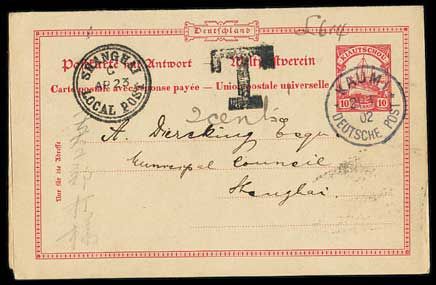 Deutschland
£614
Postkarte mit Antwort T Weltpostverein
Carte postale avec réponse payée — Union postale universelle
KIAUTSCHOU
10 10
SHANGHAI
C
AP 23
LOCAL POST
KAUMI
02
DEUTSCHE POST
2 cents
A. Dercking Esqre
Municipal Council
Shanghai.
Nur für die Adresse